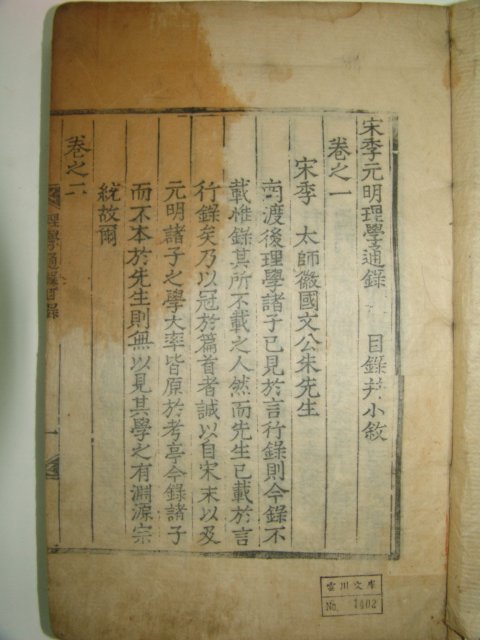 宋季元明理學通錄 目錄幷小敘
卷之一
宋季 太師徽國文公朱先生
南渡後理學諸子已見於言行錄則今錄不
載惟錄其所不載之人然而先生已載於言
行錄矣乃以冠於篇首者誠以自宋末以及
元明諸子之學大率皆原於考亭今錄諸子
而不本於先生則無以見其學之有淵源宗
統故爾
卷之二
理學通錄目錄 一
雲川文庫
No. 1402